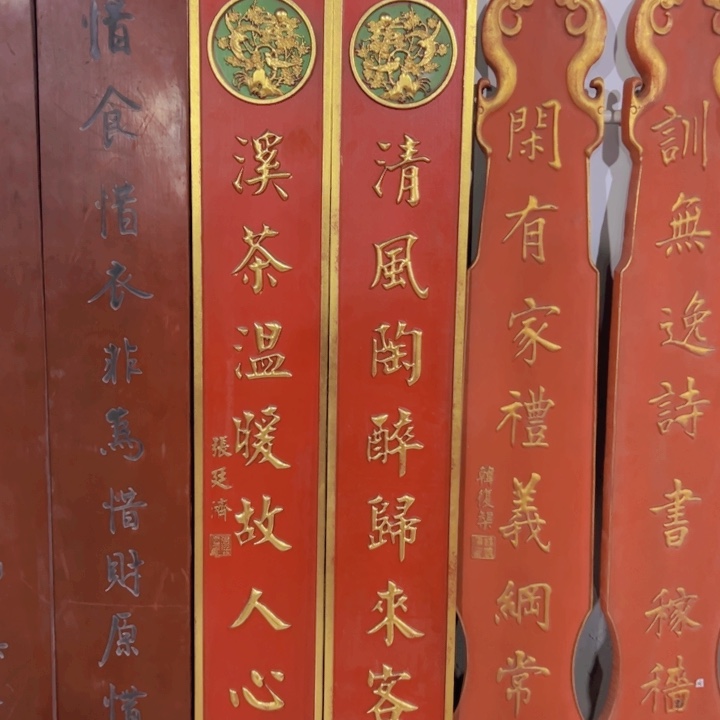 訓無逸詩書稼穡
閑有家禮義綱常
韓復榘
清風陶醉歸來客
溪茶溫暖故人心
張廷濟
惜食惜衣非為惜財原惜